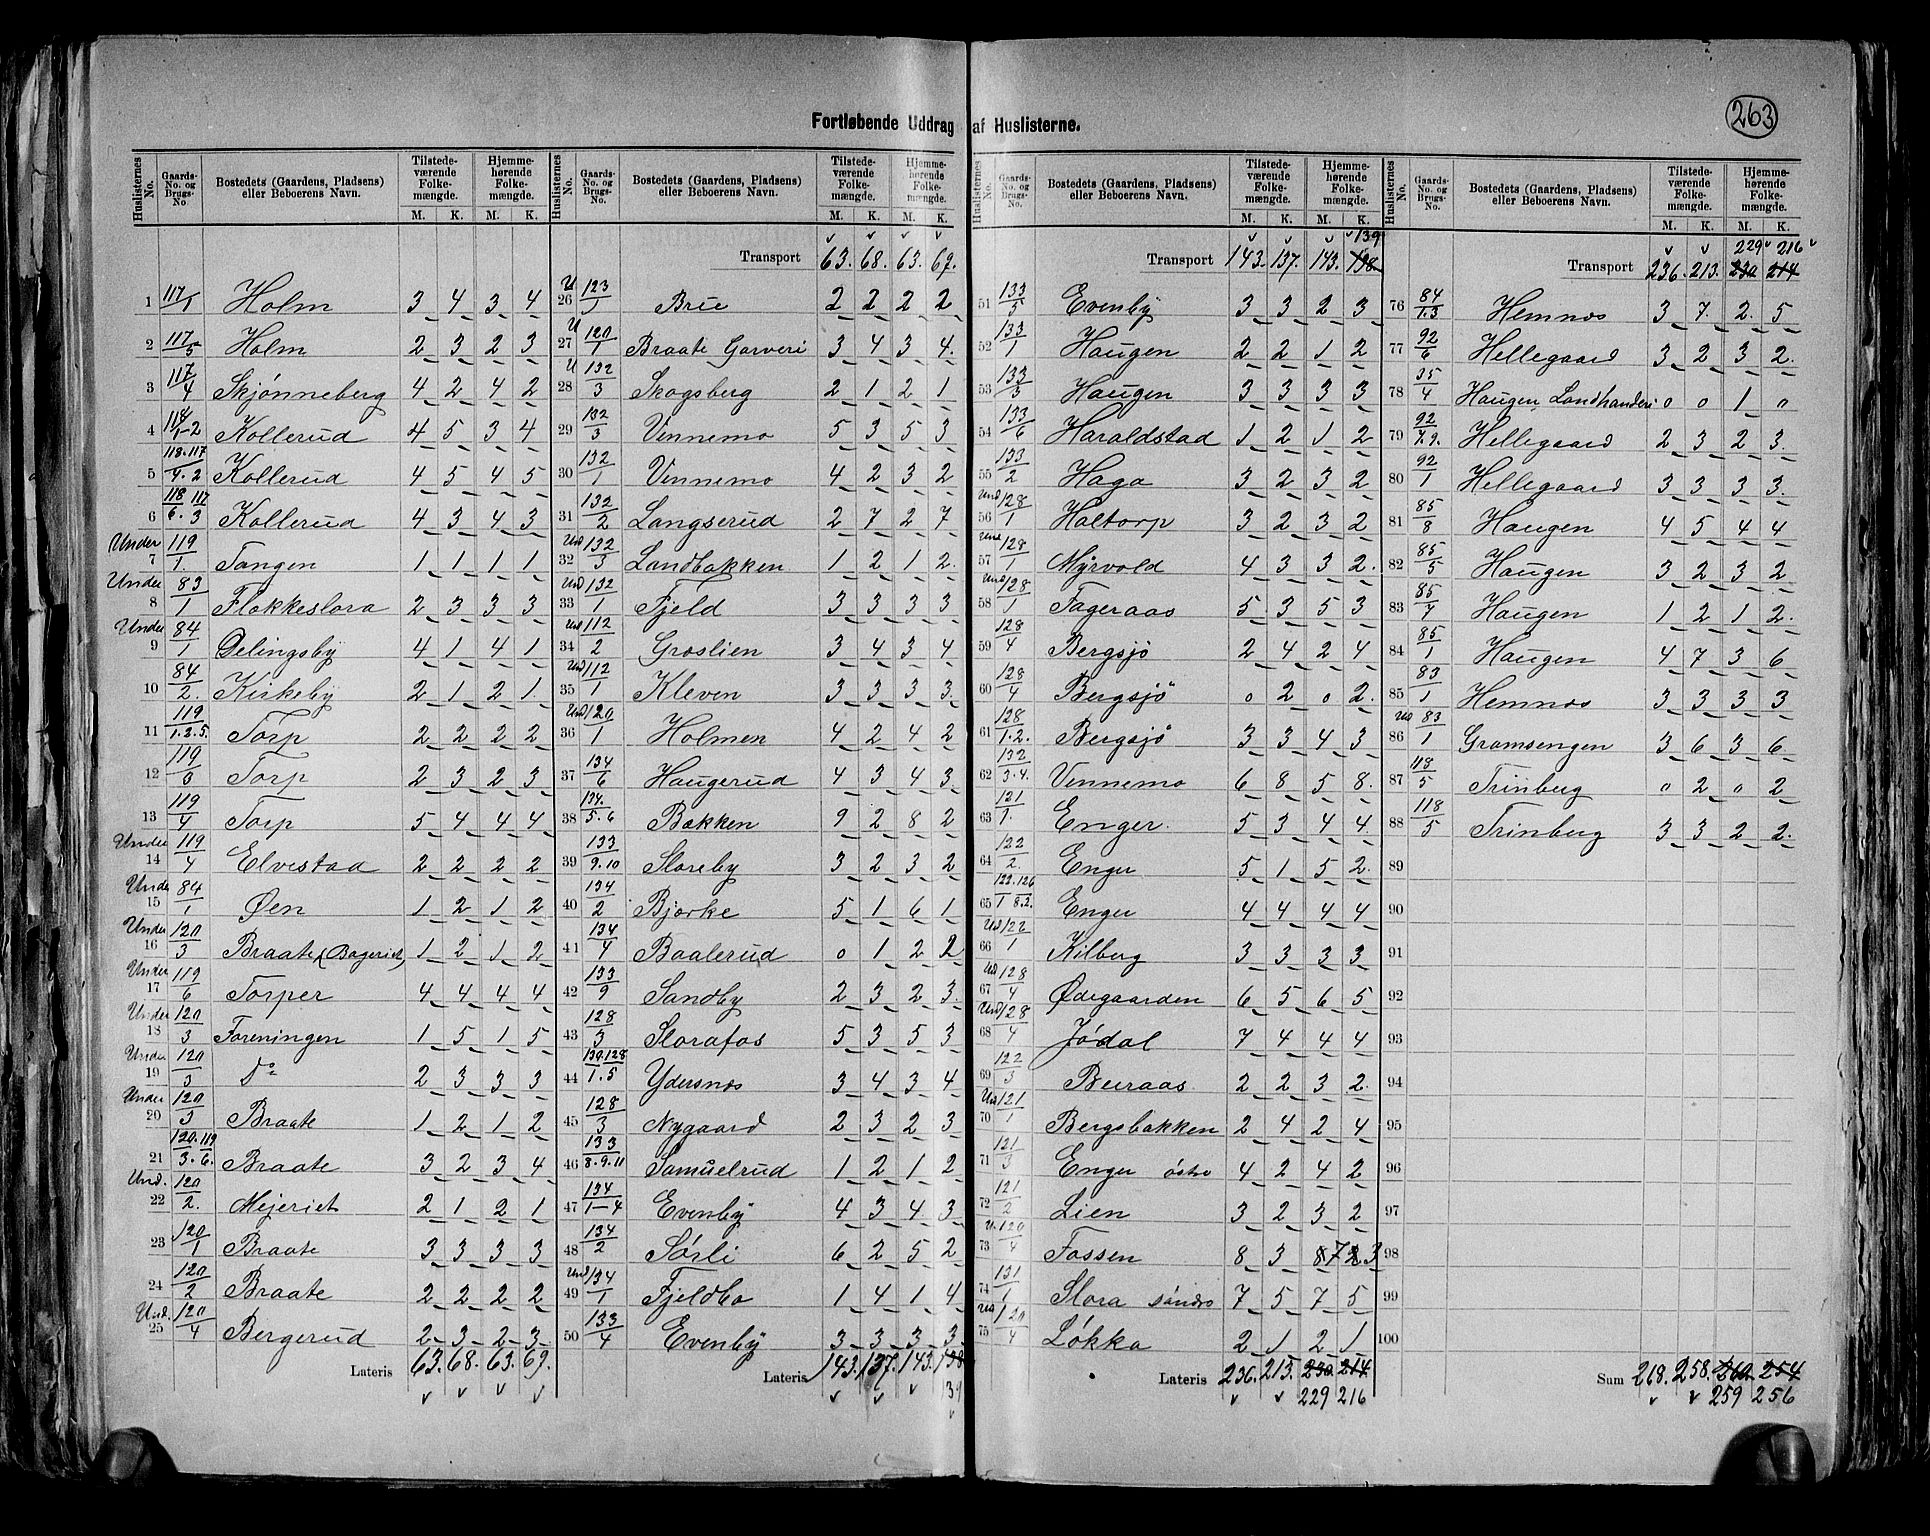 263
Fortløbende Uddrag af Huslisterne.
Huslisternes No. Gaards-No. og Brugs-No Bostedets (Gaardens, Pladsens) eller Beboerens Navn. Tilstedeværende Folkemængde. M. K. Hjemmehørende Folkemængde. M. K.
1 117/1 Holm 3 4 3 4
2 117/5 Holm 2 3 2 3
3 117/4 Skjønneberg 4 2 4 2
4 118/1-2 Kollerud 4 5 3 4
5 118.117/4.2 Kollerud 4 5 4 5
6 118 117/6.3 Kollerud 4 3 4 3
7 Under 119/1. Tangen 1 1 1 1
8 Under 83/1 Flakkeslora 2 3 3 3
9 Under 84/1 Delingsby 4 1 4 1
10 84/2. Kirkeby 2 1 2 1
11 119/1.2.5. Torp 2 2 2 2
12 119/3 Torp 2 3 2 3
13 119/4 Torp 5 4 4 4
14 Under 119/4 Elvestad 2 2 2 2
15 Under 84/1 Øen 1 2 1 2
16 Under 120/3 Braate (Bageriet) 1 2 1 2
17 Under 119/6 Torper 4 4 4 4
18 Under 120/3 Foreningen 1 5 1 5
19 Under 120/3 Do 2 3 3 3
20 Under 120/3 Braate 1 2 1 2
21 120.119/3.6. Braate 3 2 3 4
22 Und. 120/2. Mejeriet 2 1 2 1
23 120/1 Braate 3 3 3 3
24 120/2 Braate 2 2 2 2
25 Und. 120/4 Bergerud 2 3 2 3
Lateris 63. 68. 63. 69.
Huslisternes No. Gaards-No. og Brugs-No. Bostedets (Gaardens, Pladsens) eller Beboerens Navn. Tilstedeværende Folkemængde. M. K. Hjemmehørende Folkemængde. M. K.
Transport 63. 68. 63. 69.
26 U 123/1 Brue 2 2 2 2
27 U 120/1 Braate Garveri 3 4 3 4.
28 U 132/3 Skogsberg 2 1 2 1
29 132/3 Vennemo 5 3 5 3
30 132/1 Vennemo 4 2 3 2
31 132/2 Langserud 2 7 2 7
32 Und 132/3 Landbakken 1 2 1 2.
33 Und 132/1 Fjeld 3 3 3 3
34 Und 112/2 Groslien 3 4 3 4
35 Und 112/1 Kleven 3 3 3 3.
36 Und 120/1 Holmen 4 2 4 2
37 134/6 Haugerud 4 3 4 3
38 134./5.6 Bakken 9 2 8 2
39 133/9.10 Storeby 3 2 3 2
40 134/2 Bjørke 5 1 6 1
41 134/4 Baalerud 0 1 2 2
42 133/9 Sandby 2 3 2 3.
43 128/3 Slorafos 5 3 5 3
44 130.128/1.5 Ydersnes 3 4 3 4
45 128/3 Nygaard 2 3 2 3
46 133/8.9.11 Samuelrud 1 2 1 2
47 134/1-4 Evenby 4 3 4 3
48 134/2 Sørli 6 2 5 2
49 Und 134/1 Fjeldbo 1 4 1 4
50 133/4 Evenby 3 3 3 3.
Lateris 143. 137. 143. 138
39
Huslisternes No. Gaards-No. og Brugs-No. Bostedets (Gaardens, Pladsens) eller Beboerens Navn. Tilstedeværende Folkemængde. M. K. Hjemmehørende Folkemængde. M. K.
139
Transport 143. 137. 143. 138.
51 133/5 Evenby 3 3 2 3
52 133/1 Haugen 2 2 1 2
53 133/3 Haugen 3 3 3 3
54 133/6 Haraldstad 1 2 1 2
55 133/2 Haga 3 2 3 2
56 Und 128/1 Holtorp 3 2 3 2
57 Und 128/1 Myrvold 4 3 3 2.
58 Und 128/1 Fageraas 5 3 5 3
59 128/4 Bergsjø 2 4 2 4
60 128/4 Bergsjö 0 2 0 2.
61 128/1.2. Bergsjö 3 3 4 3
62 132/3.4. Vennemo 6 8 5 8.
63 121/1. Enger. 5 3 4 4.
64 122/2. Enger 5 1 5 2.
65 122.126/1 8.2. Enger 4 4 4 4
66 Ud 122/1 Kilberg 3 3 3 3
67 Ud 128/4 Ødegaarden 6 5 6 5
68 Und 128/4 Jødal 7 4 4 4
69 122/3 Buraas 2 2 3 2.
70 Ud 121/1 Bergsbakken 2 4 2 4
71 121/3 Enger östre 4 2 4 2
72 121/2 Lien 3 2 3 2
73 U. 120/4 Fossen 8 3 87 23
74 131/1 Slora söndre 7 5 7 5
75 Ud 120/4 Løkka 2 1 2 1
Lateris 236. 213. 230 214
229 216
Huslisternes No. Gaards-No. og Brugs-No. Bostedets (Gaardens, Pladsens) eller Beboerens Navn. Tilstedeværende Folkemængde. M. K. Hjemmehørende Folkemængde. M. K.
229 216
Transport 236. 213. 230 214
76 84/1.3 Hemnes 3 7. 2. 5
77 92/6 Hellegaard 3 2 3 2.
78 35/4 Haugen, Landhanderi 0 0 1 0
79 92/7.9. Hellegaard 2 3 2 3
80 92/1 Hellegaard 3 3 3 3.
81 85/8 Haugen 4 5 4 4
82 85/5 Haugen 3 2 3 2
83 85/4 Haugen 1 2 1 2.
84 85/1 Haugen 4 7 3 6
85 83/1 Hemnes 3 3 3 3
86 Ud 83/1 Gramsengen 3 6 3 6
87 118/5 Trinberg 0 2 0 2
88 118/5 Trinberg 3 3 2 2.
89
90
91
92
93
94
95
96
97
98
99
100
Sum 268. 258. 260. 254
259 256